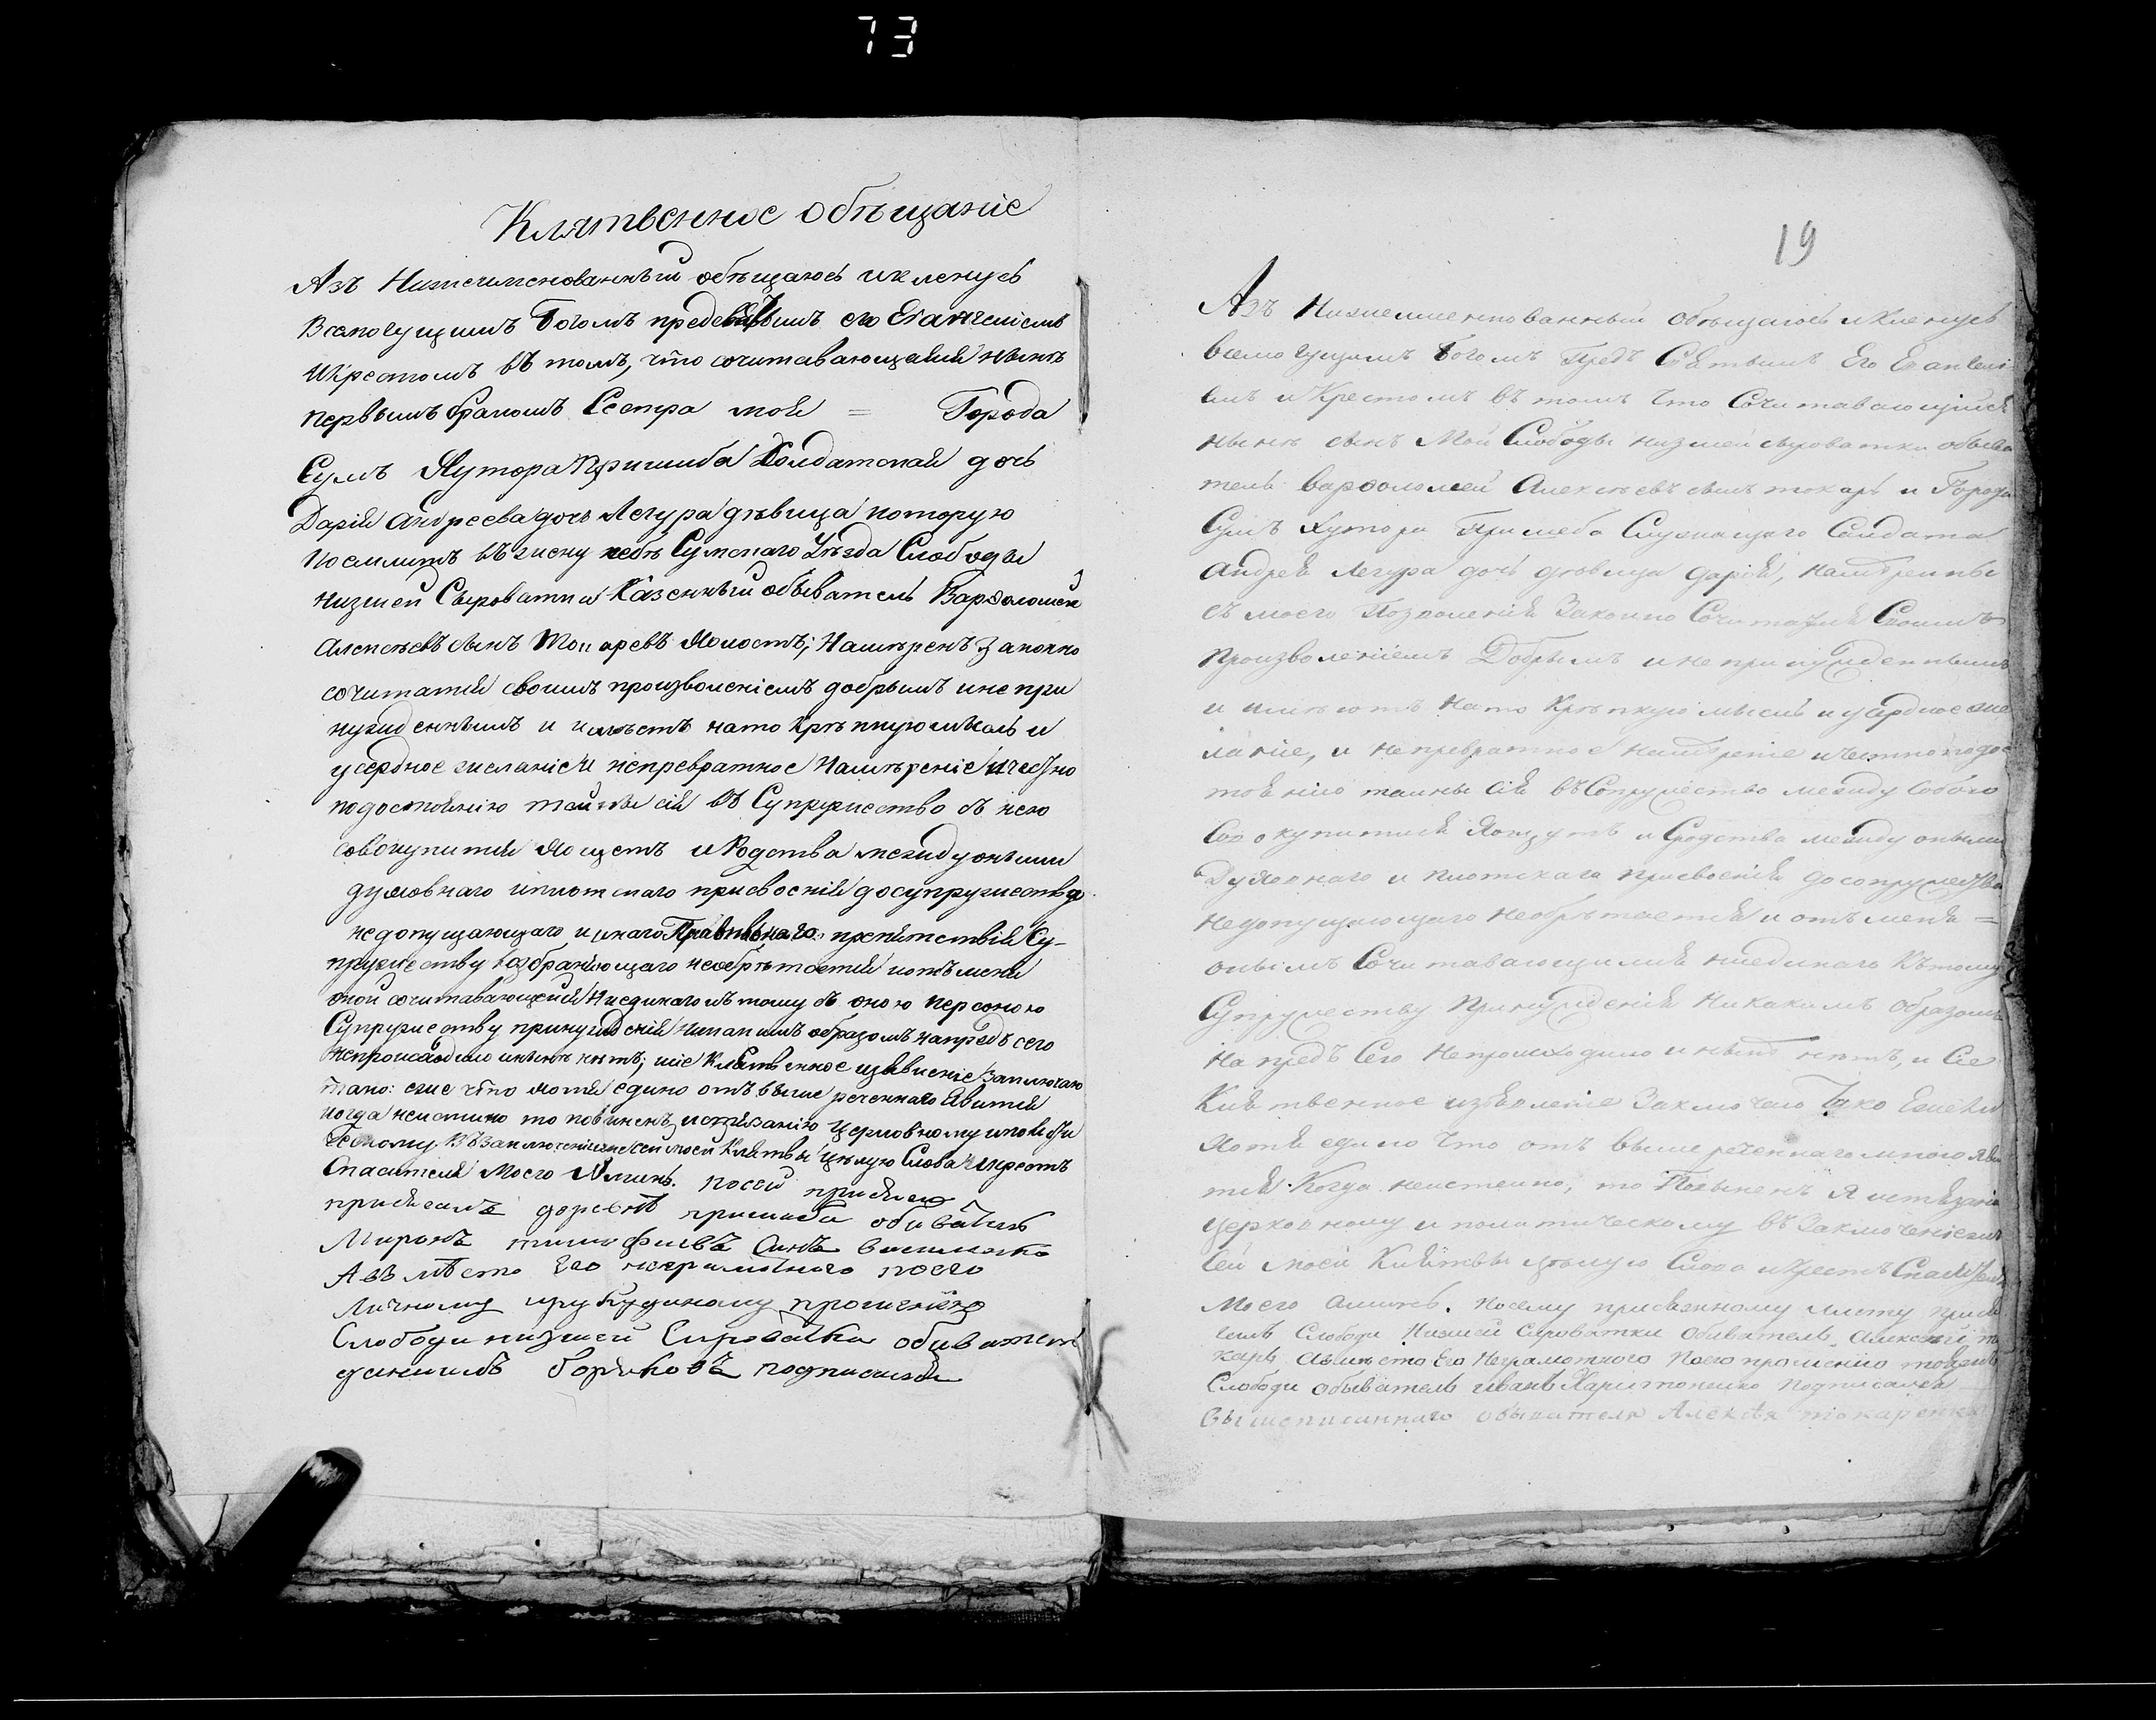 73
Клятвенное обѣщаніе
Азъ Нижеименованный обѣщаюсь и кленусь
Всемогущимъ Богомъ предсвятымъ его Еvангеліемъ
и Крестомъ въ томъ, что сочитавающаяся нынѣ
первымъ бракомъ Сестра моя = Города
Сумъ Хутора Пришиба Солдатская дочь
Дарія Андреева дочь Легура дѣвица которую
поемлетъ въ жену себѣ Сумскаго Уѣзда Слободы
Низшей Сыроватки Казенный обыватель Варѳоломей
Алексѣевъ сынъ Токаревъ Холостъ; Намѣренъ Законно
сочитатися своимъ произволеніемъ добрымъ и непри
нужденнымъ и имѣетъ на то крѣпкую мысль и
усердное желаніе и непревратное Намѣреніе и честно
по достоянію тайны сія въ Супружество съ нею
совокупится Хощетъ и Родства между оными
духовнаго и плотскаго присвоенія до супружества
недопущающаго и инаго Правильнаго препятствія Су-
пружеству возбраняющаго необрѣтается и отъ меня
оной сочитавающейся Ни единаго къ тому съ оною персоною
Супружеству принужденія никакимъ образомъ напредъ сего
непроисходило и нынѣ нѣтъ; и сіе Клятвенное изявленіе Заключаю
тако: еже что хотя едино отъ выше реченнаго Явится
когда неистинно то повиненъ истязанію церковному и полити
ческому. Въ Заключеніи же сей моей Клятвы цѣлую Слова и Крестъ
Спасителя Моего Аминь. по сей присяге
присягалъ деревнѣ пришиба обыватель
Миронъ тимофиевъ синъ
А въмѣсто его неграмотного по его
личному и рукоданому прошению
Слободи низшей Сироватки обиватель
данишлъ боряковъ подписался
19
Азъ Нижеименнованный Обѣщаюсь и Кленусь
всемогущимъ Богомъ Предъ Святымъ Его Еvангелі
емъ и Крестомъ въ томъ что Сочитавающійся
нынѣ сынъ Мой Слободы низшей сыроватки обыва
тель варѳоломей Алексѣевъ сынъ токарь и Города
Сумъ Хутора Пришеба Служащаго Салдата
Андрея Легура дочь дѣвица дарія, намѣрены
съ моего Позволенія Законно Сочитатся Своимъ
Произволеніемъ Добрымъ и не принужденнымъ
и имѣютъ на то Крѣпкую мысль и усердное же
ланіе, и непревратное намѣреніе и честно по дос
тоянію таины сія въ Сопружество между собою
Совокупитися Хощутъ и Сродства между оными
Духовнаго и плотскаго присвоенія до сопружества
недопущающаго необрѣтается и отъ меня =
онымъ Сочитавающимся ниединаго къ тому
Супружеству Принужденія Никакимъ образомъ
на предъ Сего Непроисходило и нынѣ нѣтъ, и Сіе
Клятвенное изъявленіе Заключаю Тако Ежели
Хотя едино что отъ выше реченнаго мною яви
тся Когда неистенно, то Повыненъ Я истязанію
церковному и политическому въ Заключеніе же
сей моей Клятвы цѣлую Слова и Крестъ Спасителя
Моего аминь. по сему присяжному листу прися
галъ Слободи Низшей сироватки Обиватель Алексѣй то
карь Авмѣсто его Неграмотного По его прошению тояжъ
Слободи обыватель иванъ Харитоненко Подписался
Вышеписаннаго обывателя Алексѣя токаренка